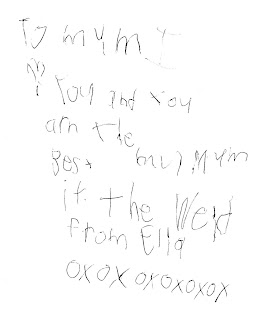 To mum I
You and You
arn the
Best mu) Mum
it the Werd
from Ella
oxox oxoxoxox